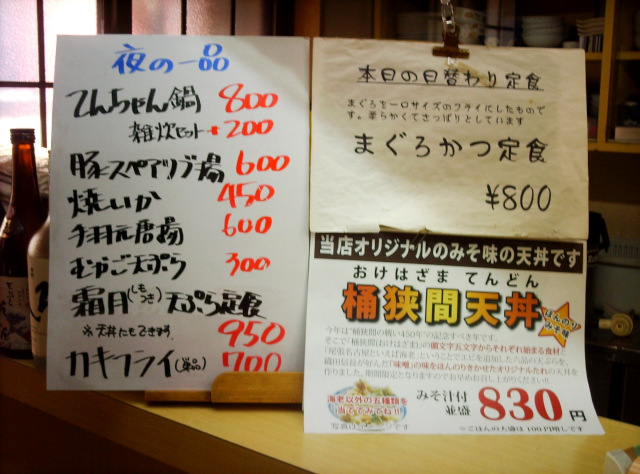 夜の一品
てんちゃん鍋 800
雑炊セット+200
豚スペアリブ揚 600
焼いか 450
手羽元唐揚 600
むかご天ぷら 300
霜月(しもつき)天ぷら定食
※天丼にもできます 950
カキフライ(単品) 700
本日の日替わり定食
まぐろを一口サイズのフライにしたもので
す。柔らかくてさっぱりとしています
まぐろかつ定食
¥800
当店オリジナルのみそ味の天丼です
おけはざま てんどん
桶狭間天丼
ほんのり
みそ味
今年は"桶狭間の戦い450年"の記念すべき年です。
そこで「桶狭間(おけはざま)」の頭文字五文字からそれぞれ始まる食材と
「尾張名古屋といえば海老」ということでエビを追加した六品の天ぷらを、
織田信長が好んだ「味噌」の味をほんのりきかせたオリジナルたれの天丼を
作りました。期間限定となりますのでお早めお召し上がりください!!
海老以外の五種類を
当ててみてね!!
みそ汁付
並盛 830円
※ごはんの大盛は100円増しです